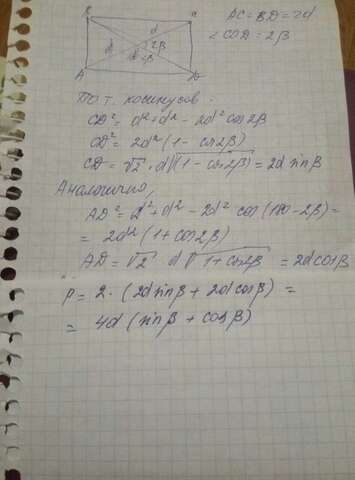 B C AC = BD = 2d
d
2β ∠COD = 2β
d d
2β
A D
По т. косинусов.
CD² = d² + d² - 2d² cos2β
CD² = 2d² (1 - cos2β)
CD = √2 · d √(1 - cos2β) = 2d sinβ
Аналогично,
AD² = d² + d² - 2d² cos (180 - 2β) =
= 2d² (1 + cos2β)
AD = √2 · d √1 + cos2β = 2d cosβ
P = 2 · (2d sinβ + 2d cosβ) =
= 4d (sinβ + cosβ)